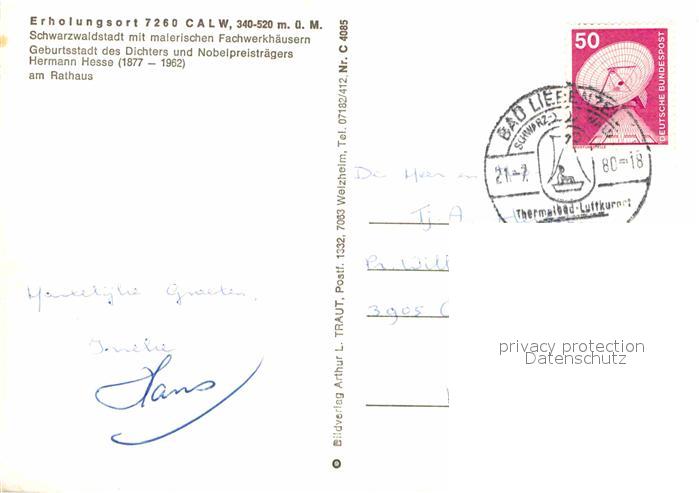 Erholungsort 7260 CALW, 340-520 m. ü. M.
Schwarzwaldstadt mit malerischen Fachwerkhäusern
Geburtsstadt des Dichters und Nobelpreisträgers
Hermann Hesse (1877 – 1962)
am Rathaus
Hartelijke Groeten,
Hans
Bildverlag Arthur L. TRAUT, Postf. 1332, 7063 Welzheim, Tel. 07182/412, Nr. C 4085
50
DEUTSCHE BUNDESPOST
BAD LIEBENZELL
SCHWARZWALD
21.-7. 80-18
Thermalbad-Luftkurort
De Heer en
Tj. A.
Pr. Will
3905
privacy protection
Datenschutz